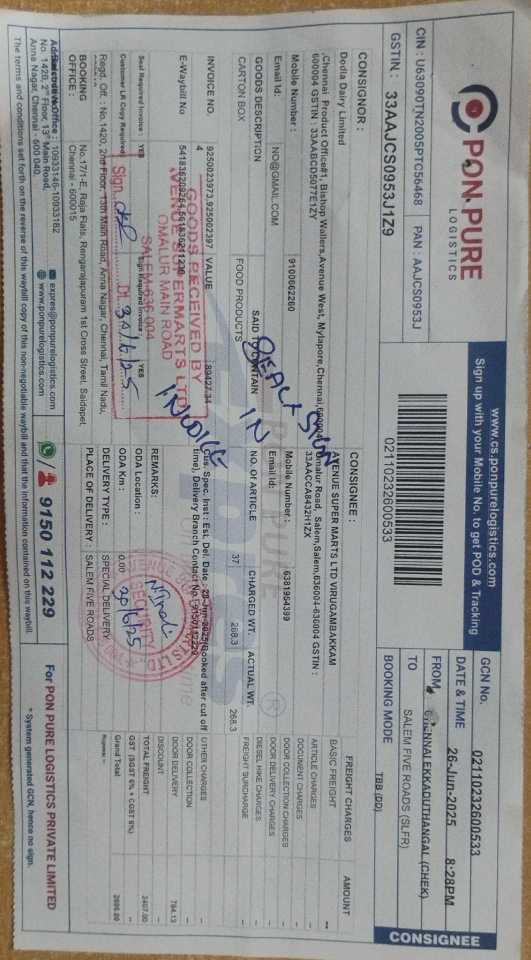 PON PURE
LOGISTICS
CIN : U63090TN2005PTC56468 PAN : AAJCS0953J
GSTIN : 33AAJCS0953J1Z9
www.cs.ponpurelogistics.com
Sign up with your Mobile No. to get POD & Tracking
02110232600533
GCN No. 02110232600533
DATE & TIME 26-Jun-2025 8:28PM
FROM CHENNAI EKKADUTHANGAL (CHEK)
TO SALEM FIVE ROADS (SLFR)
BOOKING MODE TBB (DD)
CONSIGNEE
CONSIGNOR :
Dodla Dairy Limited
,Chennai Product Office#1, Bishop Wallers,Avenue West, Mylapore,Chennai,600004
600004 GSTIN : 33AABCD5077E1ZY
Mobile Number : 9100662260
Email Id: NO@GMAIL.COM
CONSIGNEE :
AVENUE SUPER MARTS LTD VIRUGAMBAKKAM
Omalur Road, Salem,Salem,636004-636004 GSTIN :
33AACCA8432H1ZX
Mobile Number : 6381954399
Email Id:
GOODS DESCRIPTION SAID TO CONTAIN NO. OF ARTICLE CHARGED WT. ACTUAL WT.
CARTON BOX FOOD PRODUCTS 37 268.3 268.3
INVOICE NO 9250023973,925002397 VALUE 89427.34
4
E-Waybill No
Seal Required Invoice : YES Sign Required Invoice : YES
Customer LR Copy Required
Cus. Spec. Inst : Est. Del. Date : 29-Jun-2025(Booked after cut off
time), Delivery Branch Contact No.
REMARKS:
ODA Location :
ODA Km : 0.00
DELIVERY TYPE : SPECIAL DELIVERY
PLACE OF DELIVERY : SALEM FIVE ROADS
FREIGHT CHARGES AMOUNT
BASIC FREIGHT --
ARTICLE CHARGES
DOCUMENT CHARGES
DOOR COLLECTION CHARGES
DOOR DELIVERY CHARGES
DIESEL HIKE CHARGES
FREIGHT SURCHARGE
OTHER CHARGES --
DOOR COLLECTION --
DOOR DELIVERY 784.13
DISCOUNT
TOTAL FREIGHT
GST (SGST 6% + CGST 6%) --
Grand Total
Rupees --
GOODS RECEIVED BY
AVENUE SUPERMARTS LTD
OMALUR MAIN ROAD
SALEM-636 004
Sign. Dt. 30/6/25
DEACT SIGN
IN
INVOICE
SECURITY
30/6/25
Regd. Off. : No.1420, 2nd Floor, 13th Main Road, Anna Nagar, Chennai, Tamil Nadu,
BOOKING OFFICE : No.17/1-E, Raja Flats, Rengarajapuram 1st Cross Street, Saidapet,
Chennai - 600015
No. 1420, 2nd Floor, 13th Main Road,
Anna Nagar, Chennai - 600 040.
expres@ponpurelogistics.com
www.ponpurelogistics.com
9150 112 229
For PON PURE LOGISTICS PRIVATE LIMITED
* System generated GCN, hence no sign.
The terms and conditions set forth on the reverse of this waybill copy of this non-negotiable waybill and that the information contained on this waybill.